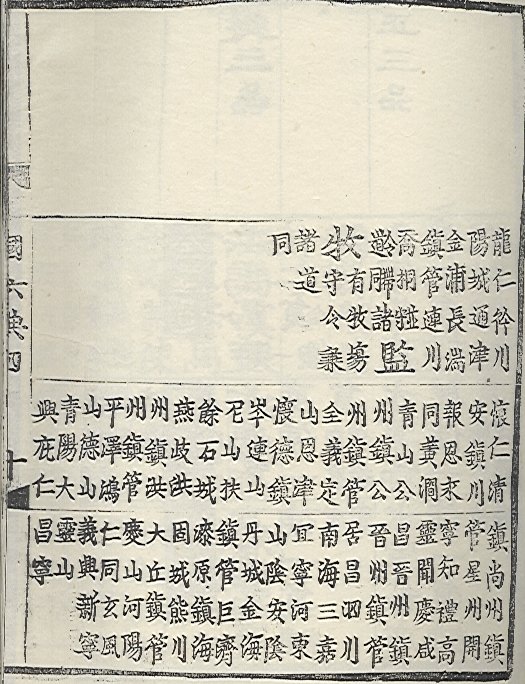 龍仁衿川
陽城通津
金浦長湍
鎮管連川
喬桐
諸
監
牧
有牧場
守令兼
諸道
同
懷仁清
安鎮川
報恩永
同黃澗
青山公
州鎮公
州鎮管
全義定
山恩津
懷德鎮
岑連山
尼山扶
餘石城
燕岐洪
州鎮洪
州鎮管
平澤鴻
山德山
青陽大
興庇仁
鎮尚州鎮
管星州開
寧知禮高
靈聞慶咸
昌晉州鎮
晉州鎮管
居昌泗川
南海三嘉
宜寧河東
山陰安陰
丹城金海
鎮管巨濟
漆原鎮海
固城熊川
大丘鎮管
慶山河陽
仁同玄風
義興新寧
靈山
昌寧
國六典四
十